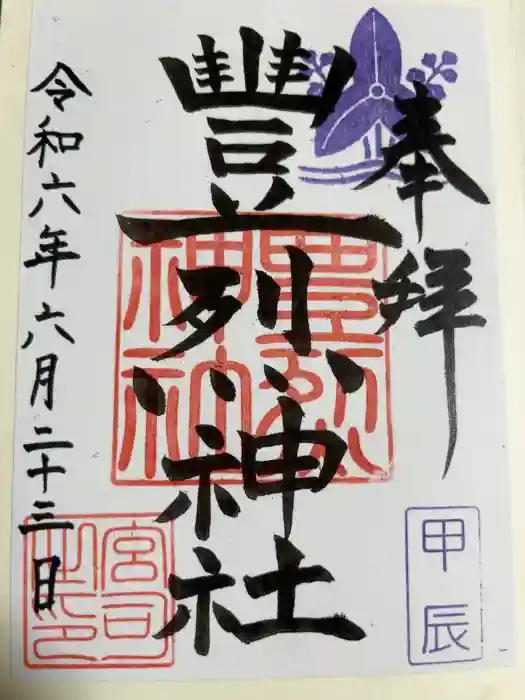 奉拝
豊烈神社
令和六年六月二十三日
豊烈神社
宮司之印
甲辰